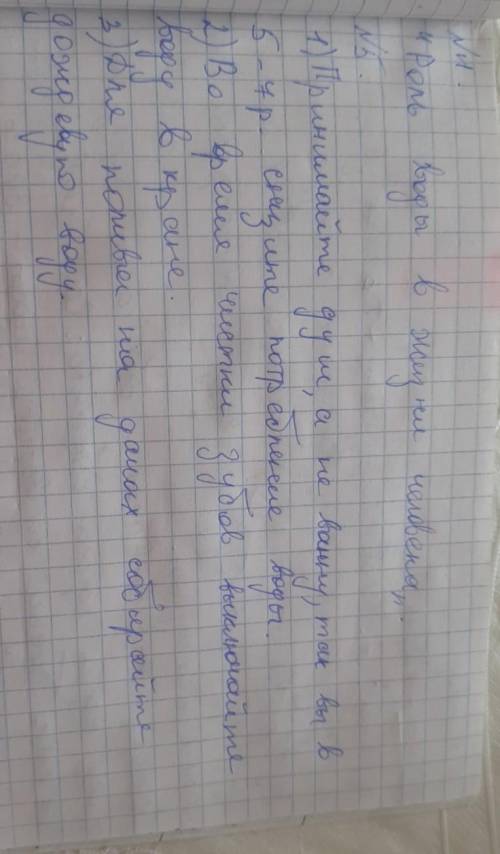 №4.
„Роль воды в жизни человека„.
№5.
1) Принимайте душ, а не ванну, так вы в
5-7р. снизите потребление воды.
2) Во время чистки зубов выключайте
воду в кране.
3) Для полива на дачах собирайте
дождевую воду.